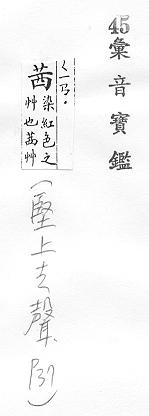 45彙音寶鑑
ㄑㄧㄢˋ
茜染紅色之
艸也茜艸
(堅上去聲P37)